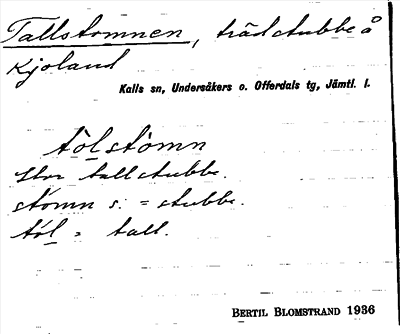 Tallstomnen, trädstubbe å
Kjoland
Kalls sn, Undersåkers o. Offerdals tg, Jämtl. l.
tólstòmn
stor tallstubbe.
stòmn s. = stubbe.
tól = tall.
BERTIL BLOMSTRAND 1936